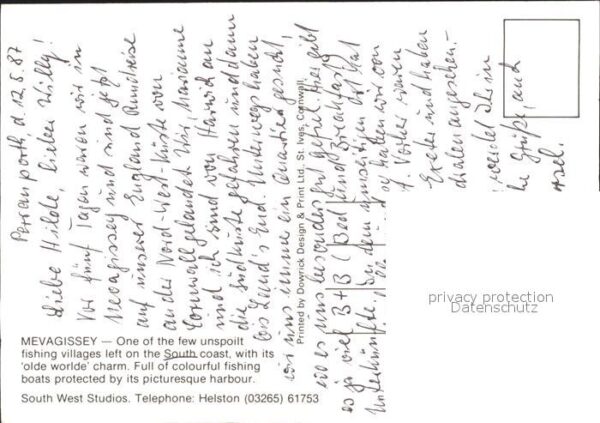 Perranporth d. 12.5.87
Liebe Hilde, lieber Willy!
Vor fünf Tagen waren wir in
Mevagissey und sind jetzt
auf unserer England Rundreise
an der Nord-West-Küste von
Cornwall gelandet. Wir, Marianne
und ich sind von Harwich an
die Südküste gefahren und dann
bis Land's End. Unterwegs haben
wir uns immer ein Quartier gesucht,
wo es uns besonders gut gefiel. Hier gibt
es ja viel B+B (Bed and Breakfast)
Unterkünfte. In dem
haben wir von
Vorher waren
Exeter und haben
angesehen.-
Grüße, auch
MEVAGISSEY — One of the few unspoilt
fishing villages left on the South coast, with its
'olde worlde' charm. Full of colourful fishing
boats protected by its picturesque harbour.
South West Studios. Telephone: Helston (03265) 61753
Printed by Dowrick Design & Print Ltd., St. Ives, Cornwall.
privacy protection
Datenschutz